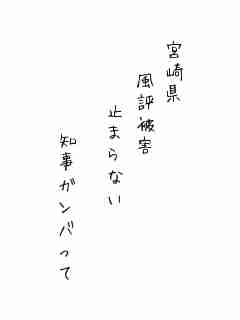 宮崎県
風評被害
止まらない
知事ガンバって